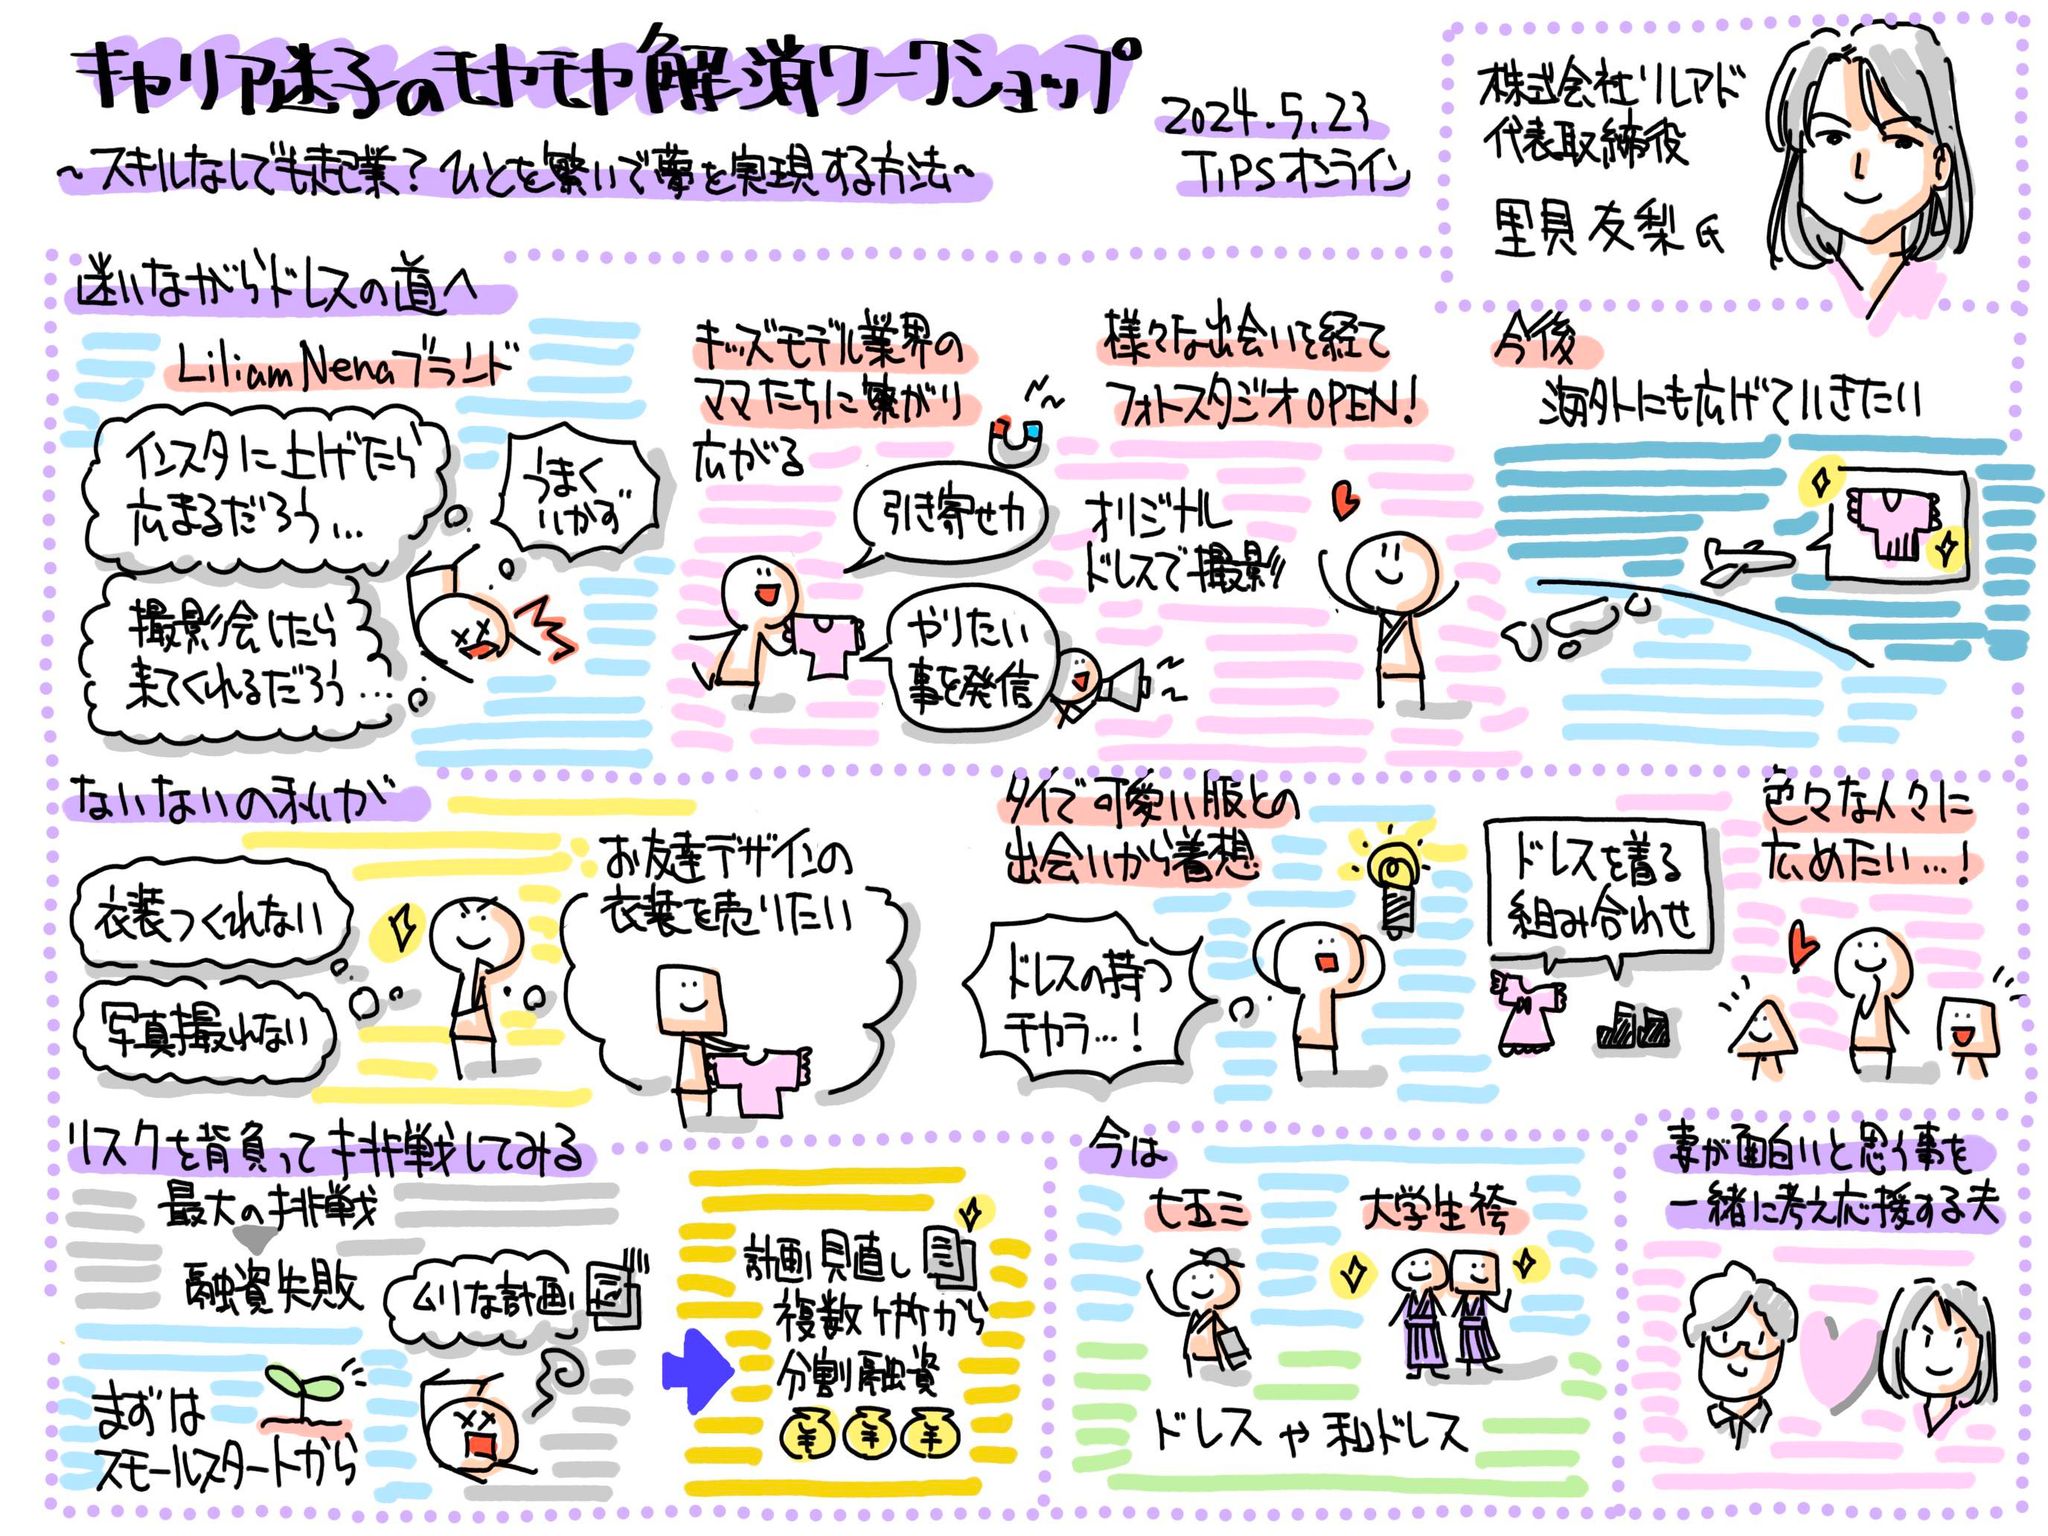 キャリア迷子のモヤモヤ解消ワークショップ
～スキルなしでも起業？ひとを繋いで夢を実現する方法～
2024.5.23
TiPSオンライン
株式会社リルアド
代表取締役
里見 友梨 氏
迷いながらドレスの道へ
Liliam Nenaブランド
インスタに上げたら
広まるだろう…
うまく
いかず
撮影会したら
来てくれるだろう…
キッズモデル業界の
ママたちに繋がり
広がる
引き寄せ力
やりたい
事を発信
様々な出会いを経て
フォトスタジオOPEN！
オリジナル
ドレスで撮影
今後
海外にも広げていきたい
ないないの私が
衣装つくれない
写真撮れない
お友達デザインの
衣装を売りたい
タイで可愛い服との
出会いから着想
ドレスの持つ
チカラ…！
ドレスを着る
組み合わせ
色々な人々に
広めたい…！
リスクを背負って挑戦してみる
最大の挑戦
融資失敗
ムリな計画
まずは
スモールスタートから
計画見直し
複数ヶ所から
分割融資
¥ ¥ ¥
今は
七五三
大学生袴
ドレスや和ドレス
妻が面白いと思う事を
一緒に考え応援する夫